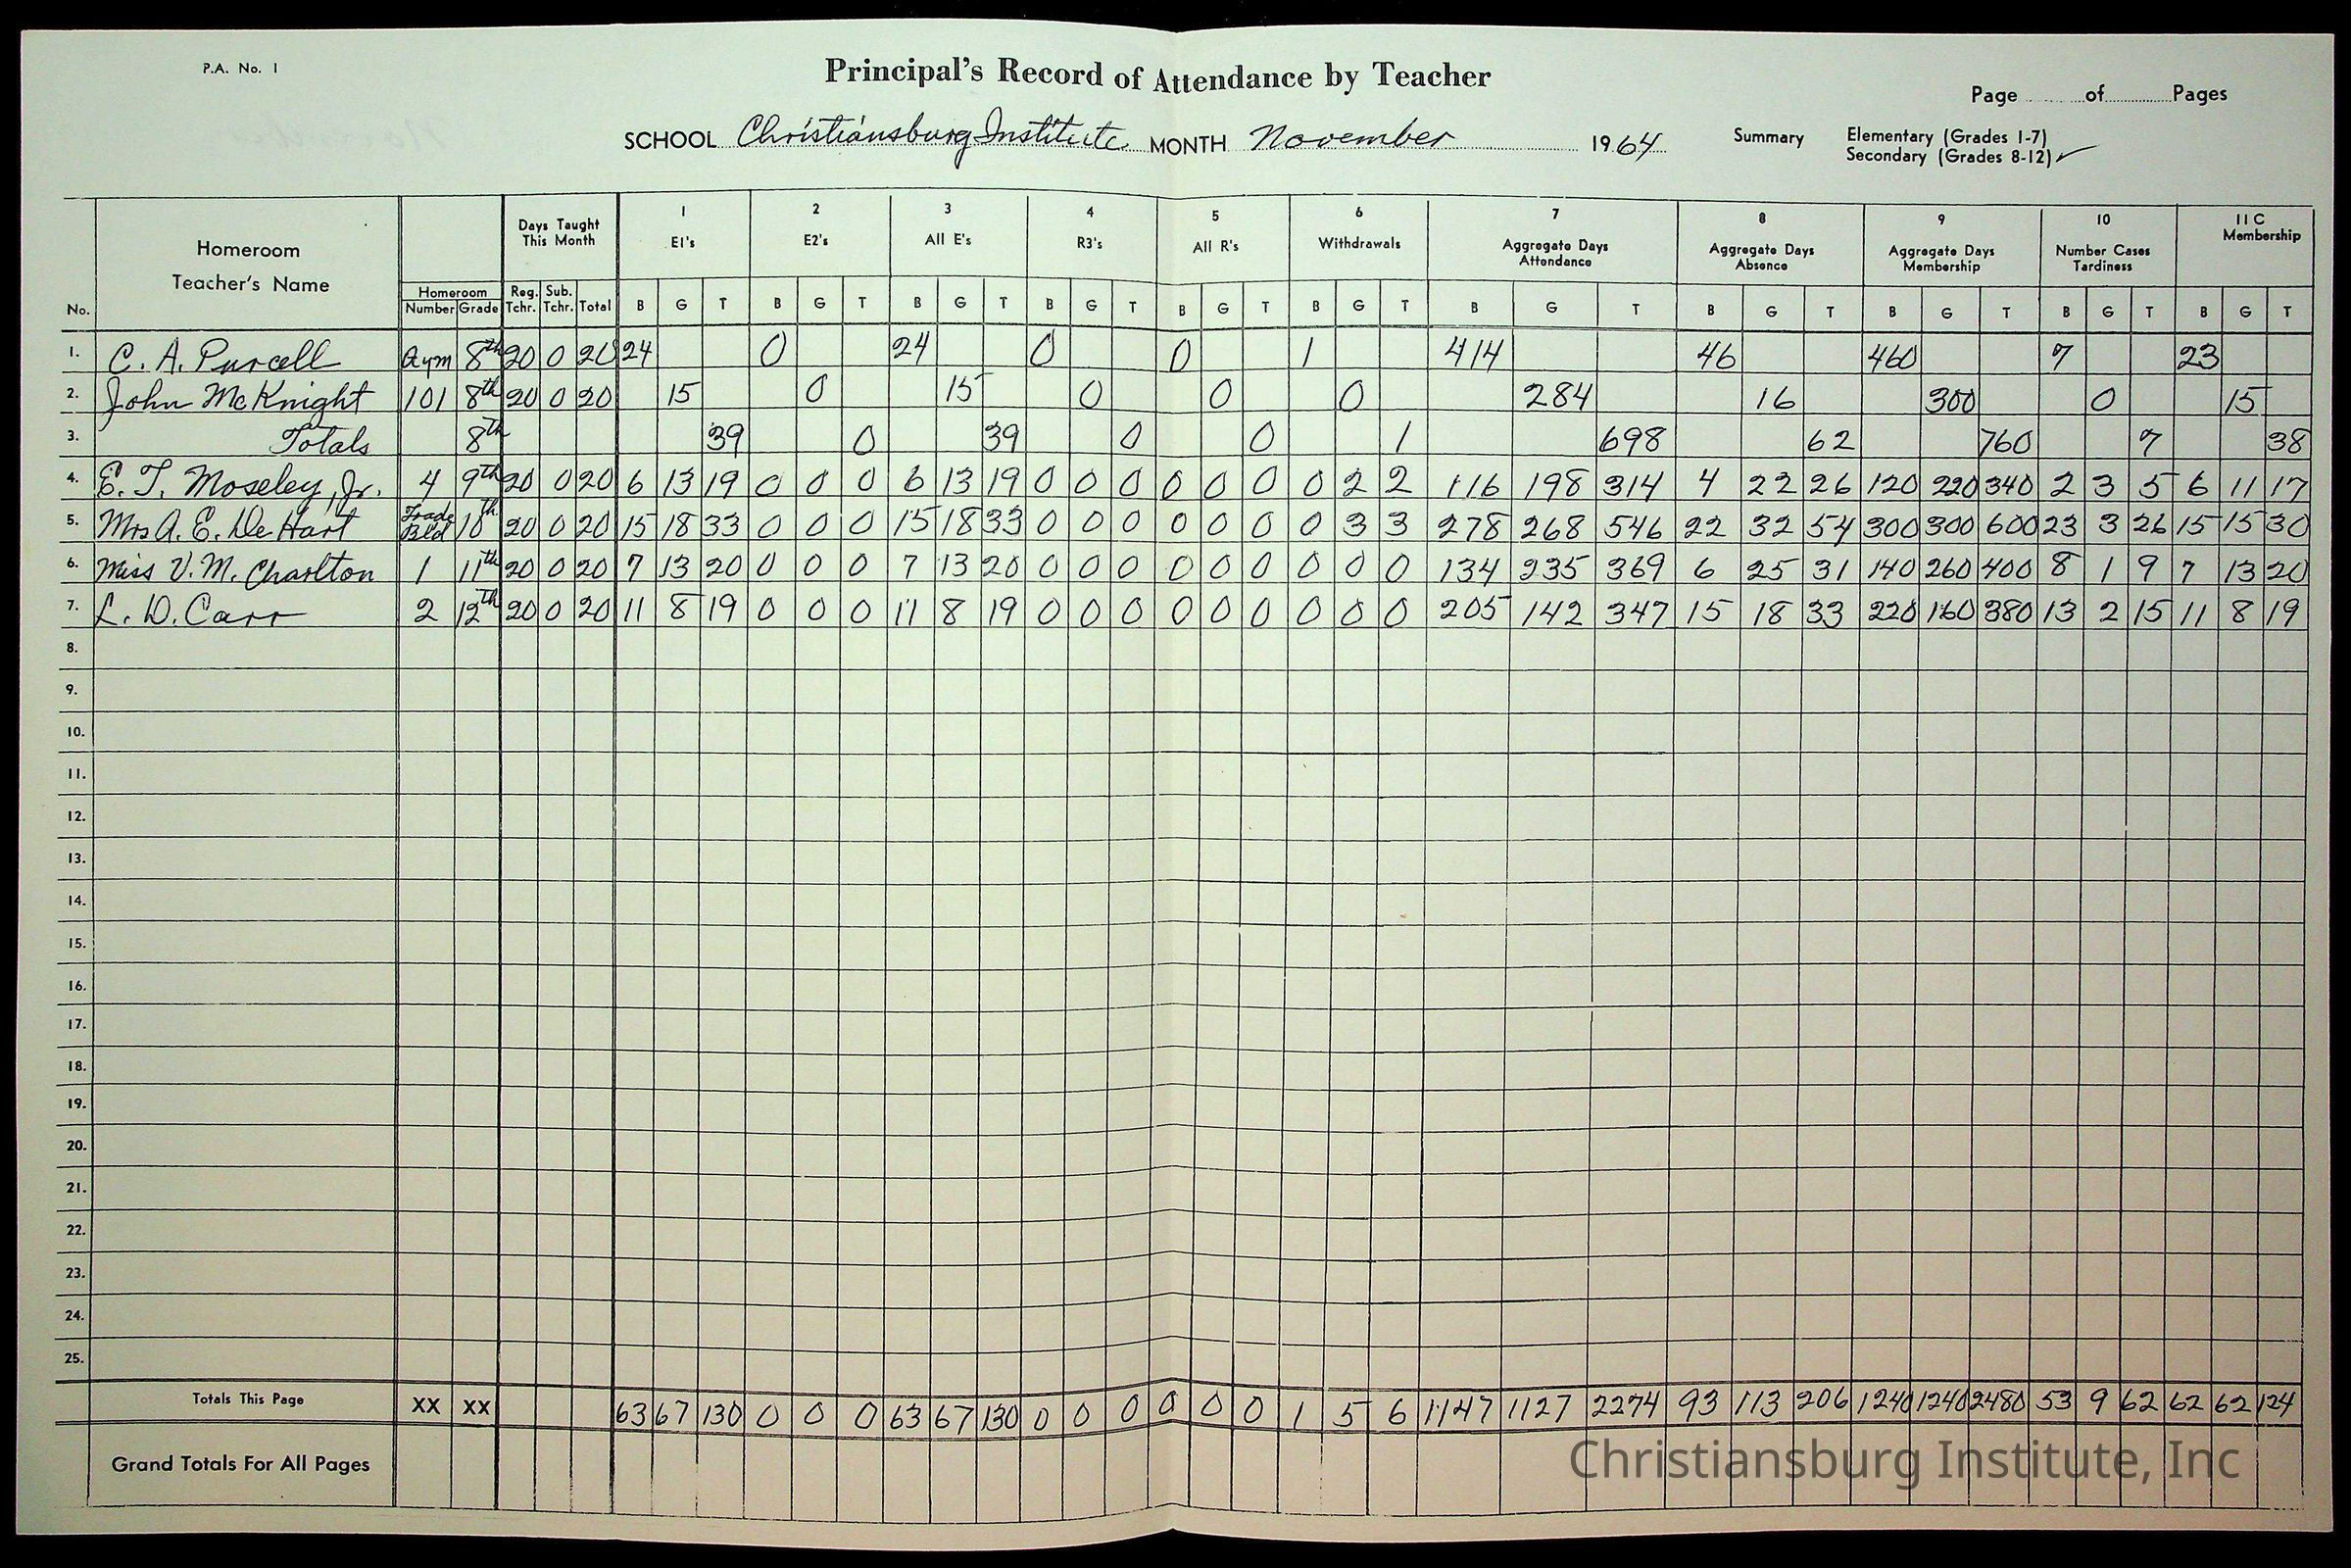 P.A. No. 1
Principal's Record of Attendance by Teacher
Page ...... of ...... Pages
SCHOOL Christiansburg Institute MONTH November 1964 Summary Elementary (Grades 1-7)
Secondary (Grades 8-12) ✓
No. Homeroom Teacher's Name Homeroom Number Grade Days Taught This Month Reg. Tchr. Sub. Tchr. Total 1 E1's 2 E2's 3 All E's 4 R3's 5 All R's 6 Withdrawals 7 Aggregate Days Attendance 8 Aggregate Days Absence 9 Aggregate Days Membership 10 Number Cases Tardiness 11 C Membership
B G T B G T B G T B G T B G T B G T B G T B G T B G T B G T B G T
1. C. A. Purcell Gym 8th 20 0 20 24 0 24 0 0 1 414 46 460 7 23
2. John McKnight 101 8th 20 0 20 15 0 15 0 0 0 284 16 300 0 15
3. Totals 8th 39 0 39 0 0 1 698 62 760 7 38
4. E. T. Moseley, Jr. 4 9th 20 0 20 6 13 19 0 0 0 6 13 19 0 0 0 0 0 0 0 2 2 116 198 314 4 22 26 120 220 340 2 3 5 6 11 17
5. Mrs A. E. DeHart Trade Bld 10th 20 0 20 15 18 33 0 0 0 15 18 33 0 0 0 0 0 0 0 3 3 278 268 546 22 32 54 300 300 600 23 3 26 15 15 30
6. Miss V. M. Charlton 1 11th 20 0 20 7 13 20 0 0 0 7 13 20 0 0 0 0 0 0 0 0 0 134 235 369 6 25 31 140 260 400 8 1 9 7 13 20
7. L. D. Carr 2 12th 20 0 20 11 8 19 0 0 0 11 8 19 0 0 0 0 0 0 0 0 0 205 142 347 15 18 33 220 160 380 13 2 15 11 8 19
8.
9.
10.
11.
12.
13.
14.
15.
16.
17.
18.
19.
20.
21.
22.
23.
24.
25.
Totals This Page XX XX 63 67 130 0 0 0 63 67 130 0 0 0 0 0 0 1 5 6 1147 1127 2274 93 113 206 1240 1240 2480 53 9 62 62 62 124
Grand Totals For All Pages
Christiansburg Institute, Inc